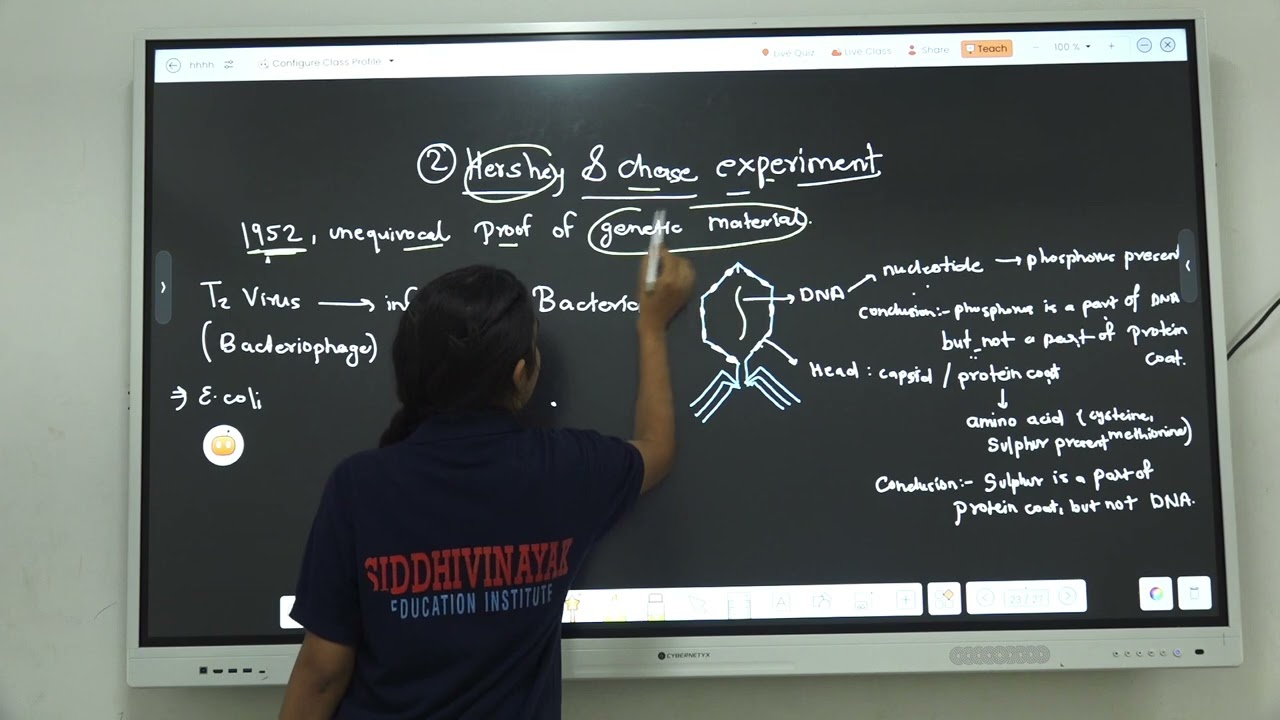 hhhh
Configure Class Profile
Live Quiz
Live Class
Share
Teach
100 %
② Hershey & chase experiment
1952, unequivocal proof of genetic material.
T₂ Virus → inf Bacteria
(Bacteriophage)
⇒ E. coli
DNA → nucleotide → phosphorus present
conclusion:- phosphorus is a part of DNA
but not a part of protein
coat.
Head : capsid / protein coat
↓
amino acid (cysteine,
Sulphur present methionine)
Conclusion:- Sulphur is a part of
protein coat, but not DNA.
SIDDHIVINAYAK
EDUCATION INSTITUTE
CYBERNETYX